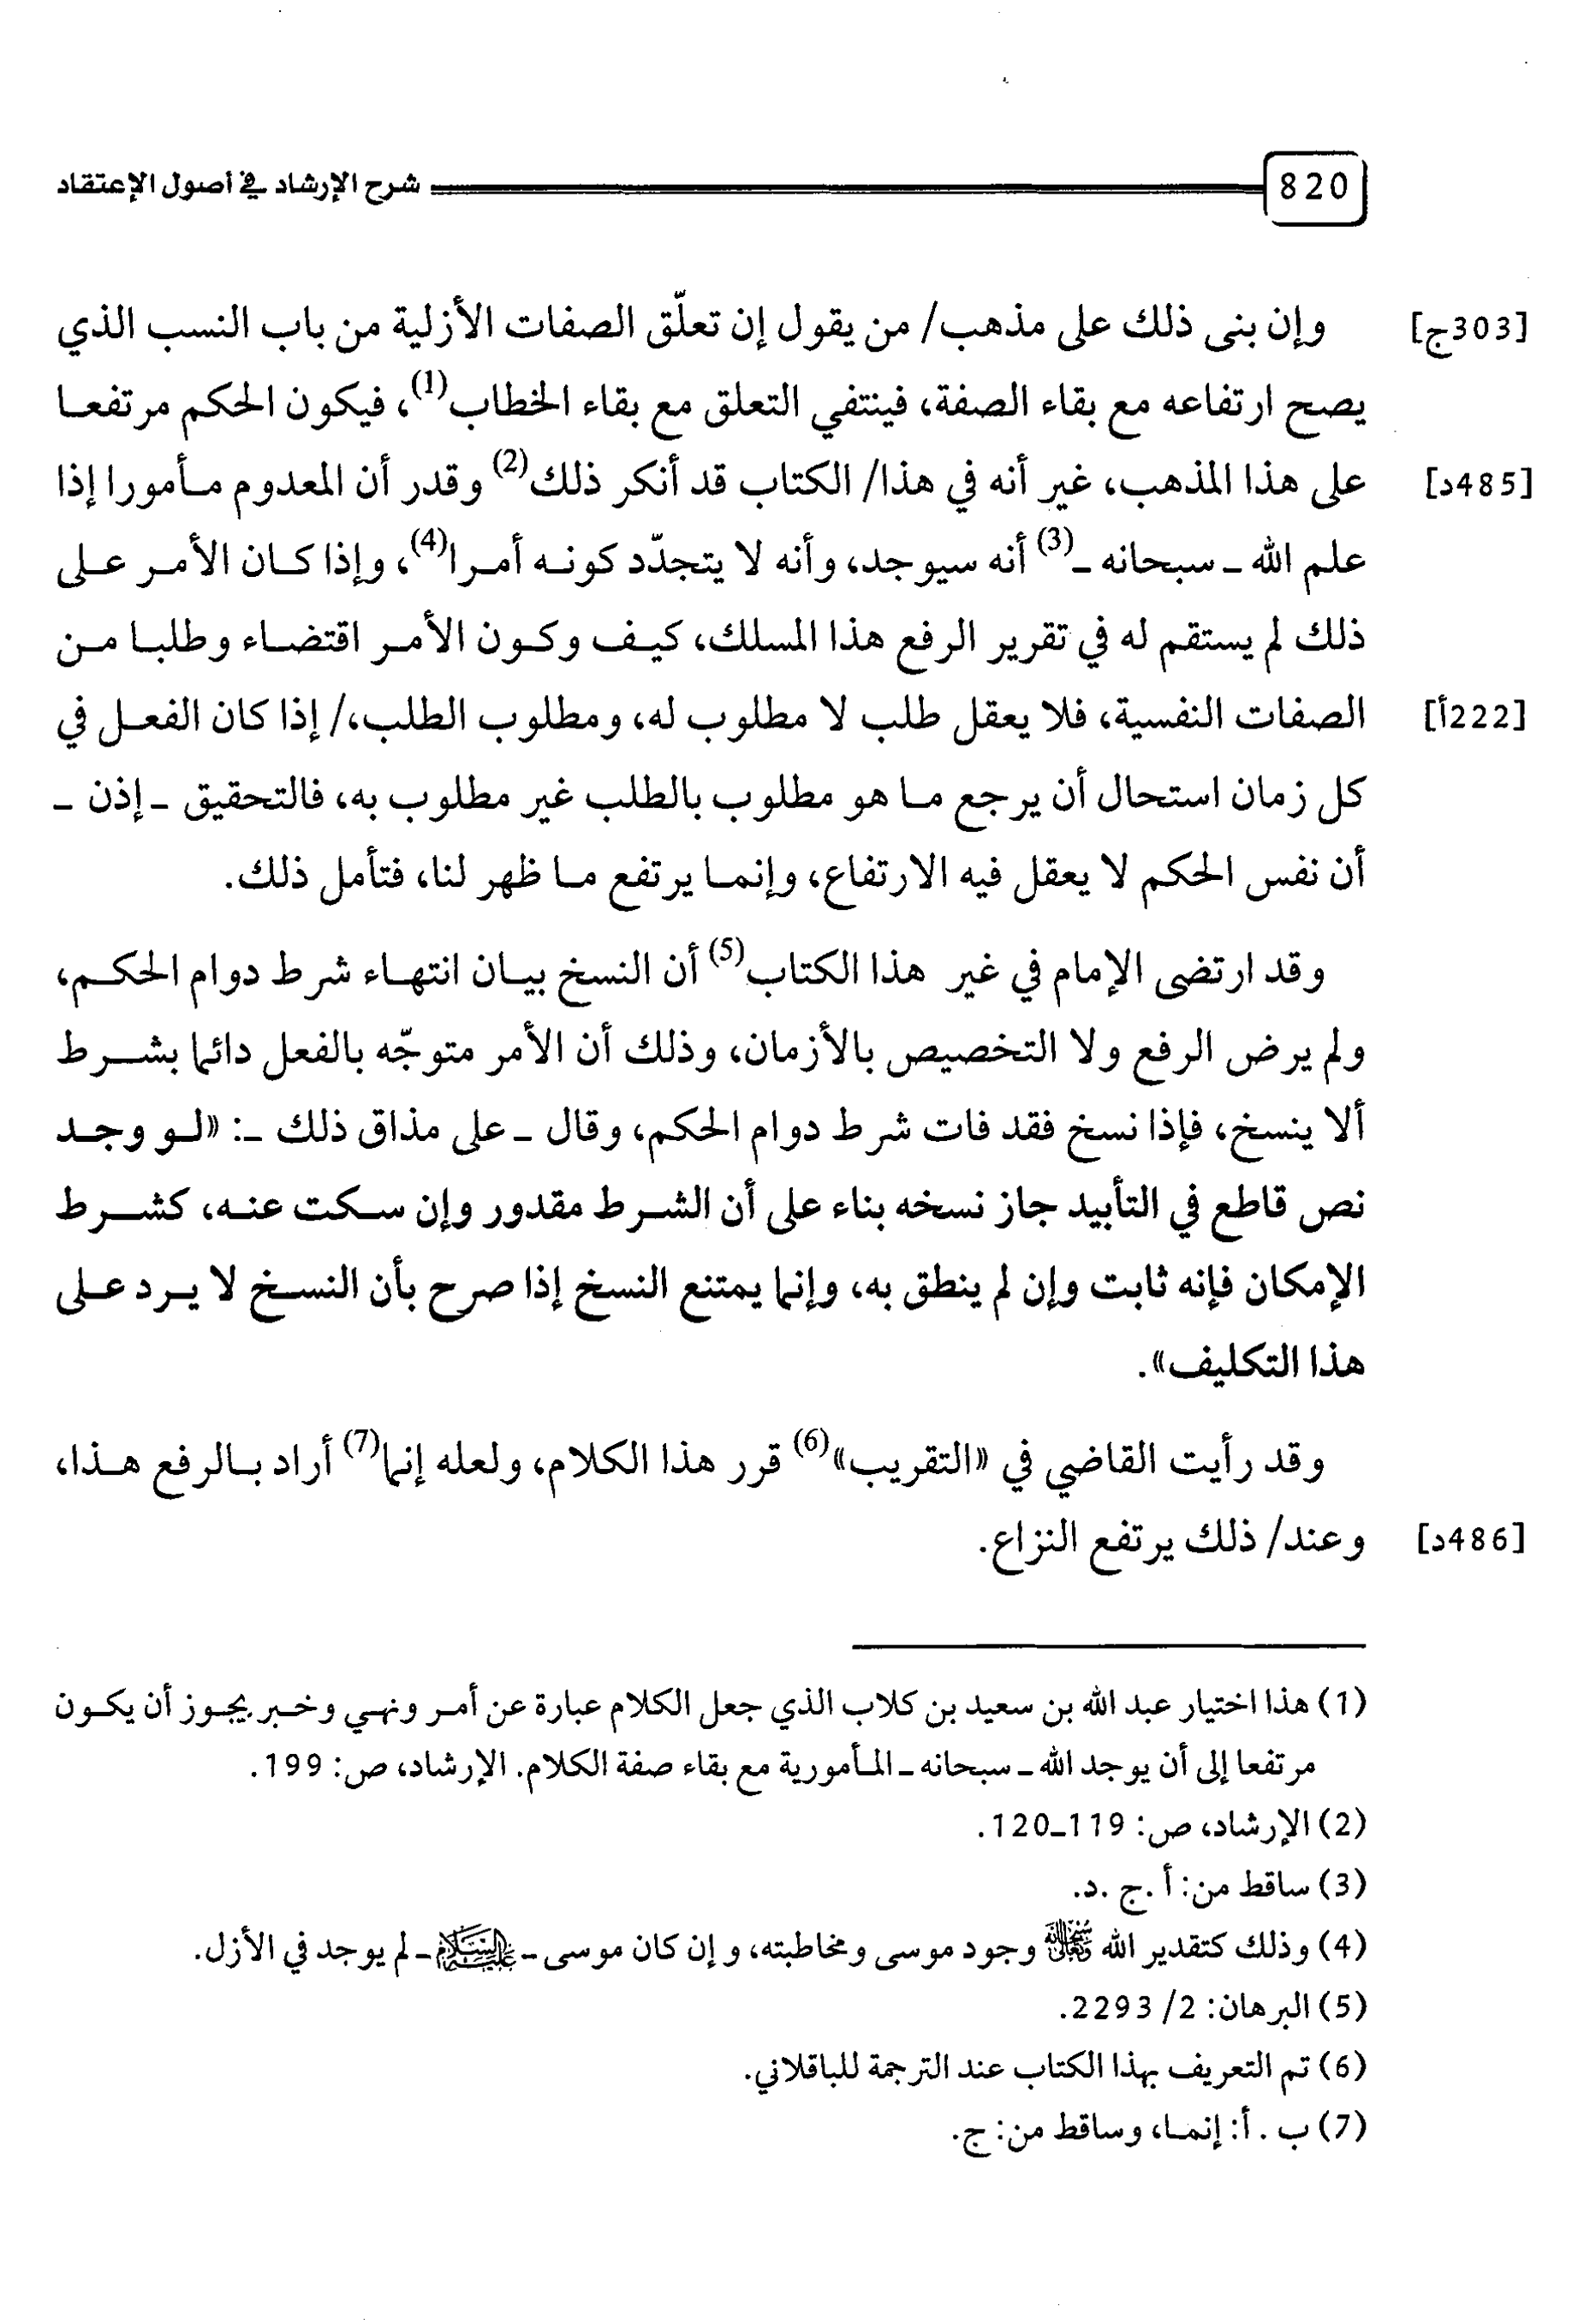 820 شرح الإرشاد في أصول الإعتقاد
[303ج] وإن بنى ذلك على مذهب/ من يقول إن تعلّق الصفات الأزلية من باب النسب الذي
يصح ارتفاعه مع بقاء الصفة، فينتفي التعلق مع بقاء الخطاب(1)، فيكون الحكم مرتفعا
[485د] على هذا المذهب، غير أنه في هذا/ الكتاب قد أنكر ذلك(2) وقدر أن المعدوم مأمورا إذا
علم الله ـ سبحانه ـ(3) أنه سيوجد، وأنه لا يتجدّد كونه أمرا(4)، وإذا كان الأمر على
ذلك لم يستقم له في تقرير الرفع هذا المسلك، كيف وكون الأمر اقتضاء وطلبا من
[222أ] الصفات النفسية، فلا يعقل طلب لا مطلوب له، ومطلوب الطلب،/ إذا كان الفعل في
كل زمان استحال أن يرجع ما هو مطلوب بالطلب غير مطلوب به، فالتحقيق ـ إذن ـ
أن نفس الحكم لا يعقل فيه الارتفاع، وإنما يرتفع ما ظهر لنا، فتأمل ذلك.
وقد ارتضى الإمام في غير هذا الكتاب(5) أن النسخ بيان انتهاء شرط دوام الحكم،
ولم يرض الرفع ولا التخصيص بالأزمان، وذلك أن الأمر متوجّه بالفعل دائما بشرط
ألا ينسخ، فإذا نسخ فقد فات شرط دوام الحكم، وقال ـ على مذاق ذلك ـ: «لو وجد
نص قاطع في التأبيد جاز نسخه بناء على أن الشرط مقدور وإن سكت عنه، كشرط
الإمكان فإنه ثابت وإن لم ينطق به، وإنما يمتنع النسخ إذا صرح بأن النسخ لا يرد على
هذا التكليف».
وقد رأيت القاضي في «التقريب»(6) قرر هذا الكلام، ولعله إنما(7) أراد بالرفع هذا،
[486د] وعند/ ذلك يرتفع النزاع.
(1) هذا اختيار عبد الله بن سعيد بن كلاب الذي جعل الكلام عبارة عن أمر ونهي وخبر يجوز أن يكون
مرتفعا إلى أن يوجد الله ـ سبحانه ـ المأمورية مع بقاء صفة الكلام. الإرشاد، ص: 199.
(2) الإرشاد، ص: 119ـ120.
(3) ساقط من: أ .ج .د.
(4) وذلك كتقدير الله سبحانه وتعالى وجود موسى ومخاطبته، وإن كان موسى ـ عليه السلام ـ لم يوجد في الأزل.
(5) البرهان: 2/ 2293.
(6) تم التعريف بهذا الكتاب عند الترجمة للباقلاني.
(7) ب . أ: إنما، وساقط من: ج.